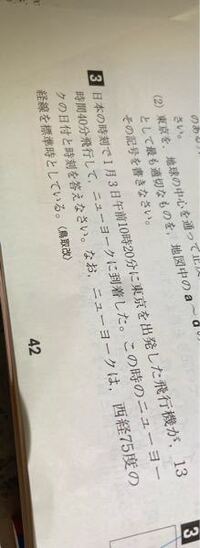 さい。
(2) 東京を，地球の中心を通って正反
として最も適切なものを，地図中のa～d
その記号を書きなさい。
3 日本の時刻で1月3日午前10時20分に東京を出発した飛行機が，13
時間40分飛行して，ニューヨークに到着した。この時のニューヨー
クの日付と時刻を答えなさい。なお，ニューヨークは，西経75度の
経線を標準時としている。 (鳥取改)
42
3